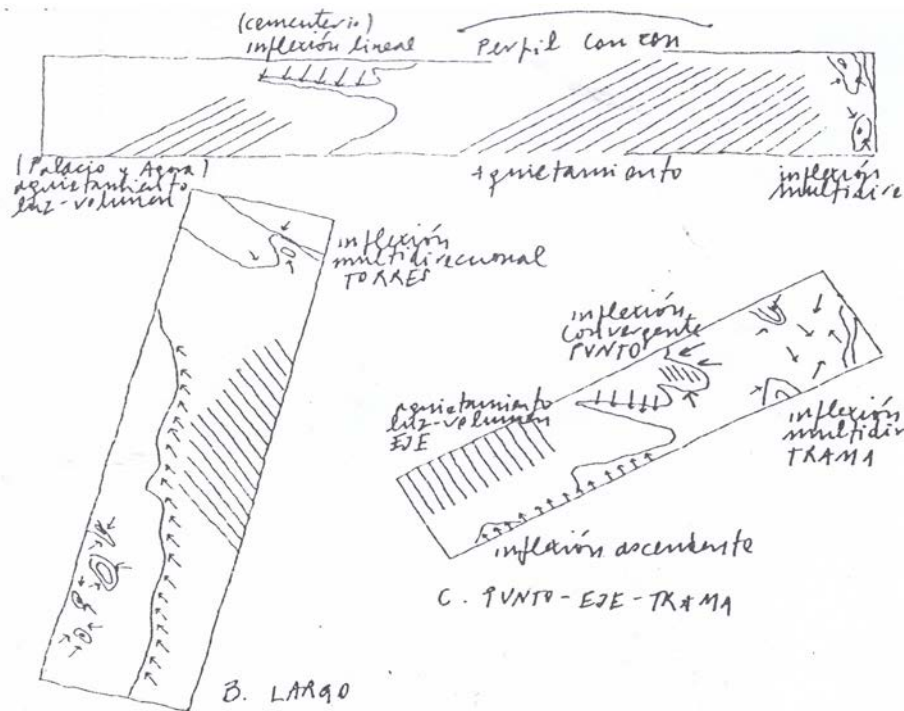 (cementerio)
inflexión lineal
Perfil con con
(Palacio y Agora)
aquietamiento
luz-volumen
aquietamiento
inflexión
multidire
inflexión
multidireccional
TORRES
inflexión
convergente
PUNTO
aquietamiento
luz-volumen
EJE
inflexión
multidir
TRAMA
inflexión ascendente
C. PUNTO-EJE-TRAMA
B. LARGO